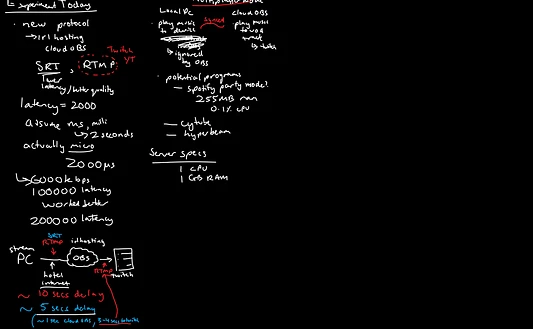 Experiment Today
- new protocol
→ irl hosting
cloud OBS
SRT > RTMP
Twitch
YT
lower
latency/better quality
latency = 2000
assume ms, milli
↳ 2 seconds
actually micro
2000 µs
↳ 6000 kbps
100000 latency
worked better
200000 latency
SRT
RTMP
irlhosting
stream
PC
OBS
RTMP
twitch
hotel
internet
~ 10 secs delay
~ 5 secs delay
Local PC
Cloud OBS
- play music
to device
synced
- play music
to vod
track
→ twitch
↳ ignored
by OBS
- potential programs
— spotify party mode?
255MB ram
0.1% CPU
— cytube
— hyperbeam
Server specs
1 CPU
1 GB RAM